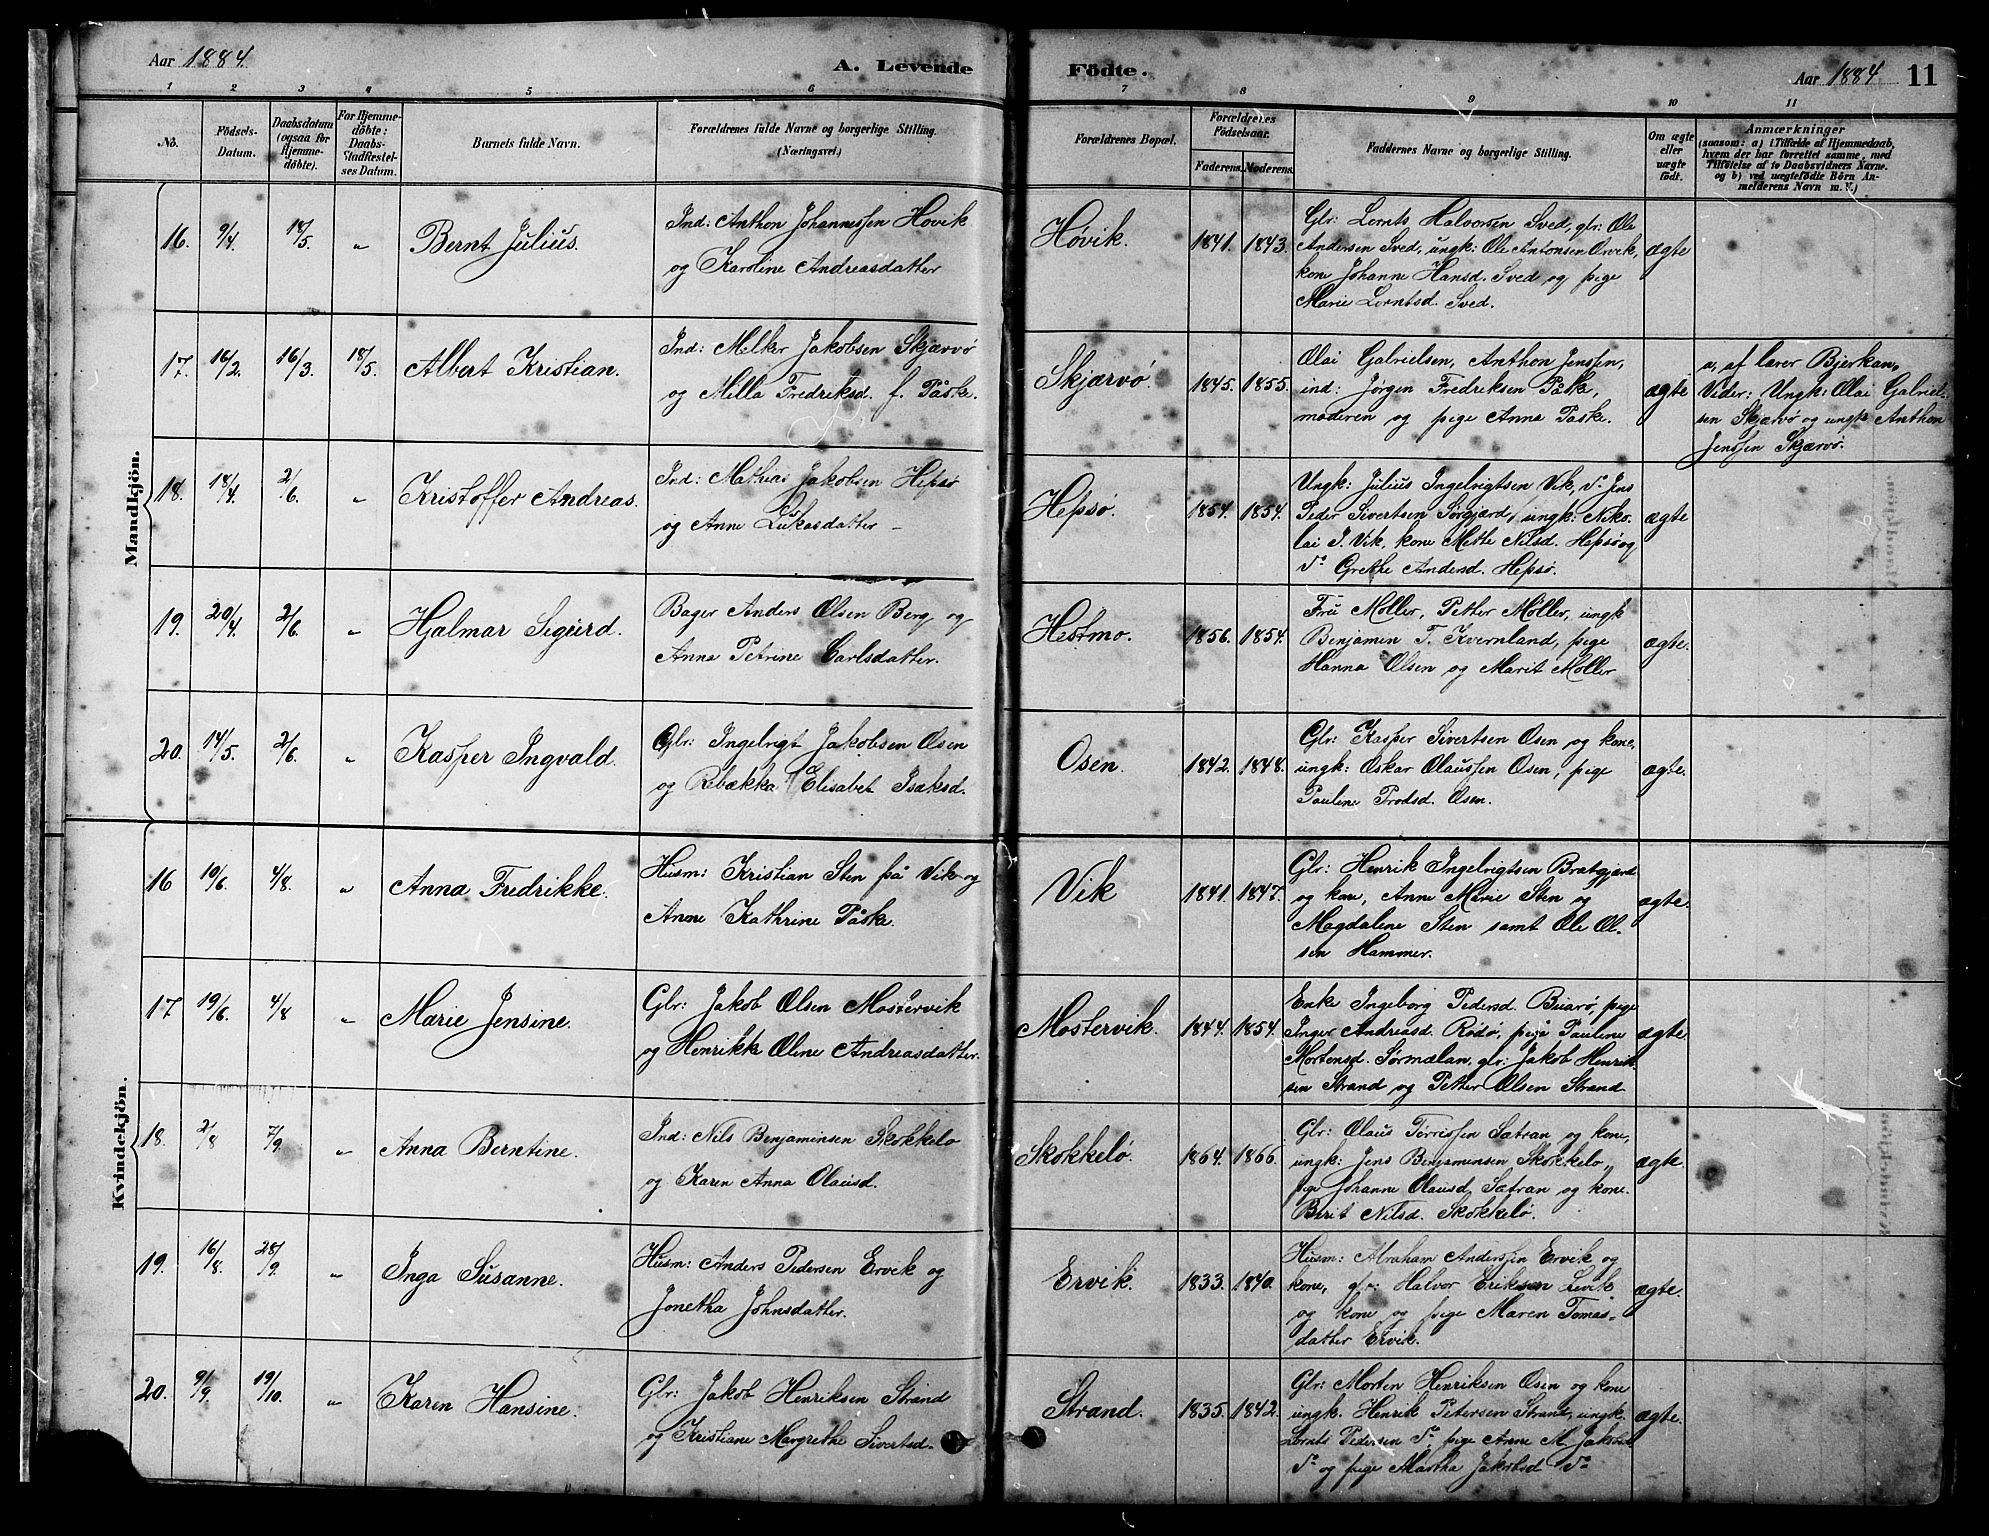 Aar 1884. A. Levende Födte. Aar 1884 11
1 2 3 4 5 6 7 8 9 10 11
No.
Födsels-
Datum.
Daabsdatum
(ogsaa for
Hjemme-
döbte).
For Hjemme-
döbte:
Daabs-
Stadfæstel-
ses Datum.
Barnets fulde Navn.
Forældrenes fulde Navne og borgerlige Stilling.
(Næringsvei.)
Forældrenes Bopæl.
Forældrenes
Födselsaar.
Faderens. Moderens.
Faddernes Navne og borgerlige Stilling.
Om ægte
eller
uægte
födt.
Anmærkninger
(saasom: a) i Tilfælde af Hjemmedaab,
hvem der har forrettet samme, med
Tilföielse af to Daabsvidners Navne.
og b) ved uægtefödte Börn An-
melderens Navn m. V.)
Mandkjön.
16. 9/4. 18/5. „ Bernt Julius.
Ind: Anthon Johannessen Hovik
og Karoline Andreasdatter
Høvik. 1841. 1843.
Glr: Lornts Halvorsen Sved, glr: Ole
Andersen Sved, ungk: Ole Antonsen Ørvik,
kone Johanne Hansd. Sved og pige
Marie Lorntsd. Sved.
ægte
17. 16/2. 16/3. 18/5. Albert Kristian.
Ind: Milker Jakobsen Skjærvø
og Milla Fredriksd. f. Påske.
Skjærvø. 1845. 1855.
Olai Gabrielsen, Anthon Jenssen,
ind: Jørgen Fredriksen Påske,
moderen og pige Anna Påske.
ægte
a, af lærer Bjerkan,
Vidner: Ungk: Olai Gabriel-
sen Skjærvø og ungk Anthon
Jenssen Skjærvø.
18. 18/4. 2/6. „ Kristoffer Andreas.
Ind: Mathias Jakobsen Hepsø
og Anne Lukasdatter –
Hepsø. 1854. 1854.
Ungk: Julius Ingelrigtsen Vik, do Jens
Peder Sivertsen Sørgjærd, ungk: Niko-
lai J. Vik, kone Mette Nilsd. Hepsø og
do Grethe Andersd. Hepsø.
ægte
19. 20/4. 2/6. „ Hjalmar Sigurd.
Bager Anders Olsen Berg og
Anna Petrine Carlsdatter.
Hestmo. 1856. 1854.
Fru Møller, Petter Møller, ungk
Benjamin T. Kvernland, pige
Hanna Olsen og Marit Møller
ægte.
20. 14/5. 2/6. „ Kasper Ingvald.
Glr: Ingelrigt Jakobsen Osen
og Rebækka Elisabet Isaksd.
Osen. 1842. 1848.
Glr: Kasper Sivertsen Osen og kone,
ungk: Oskar Olaussen Osen, pige
Pauline Trodsd. Osen.
ægte.
Kvindekjön.
16 10/6. 4/8. „ Anna Fredrikke.
Husm: Kristian Sten på Vik og
Anne Kathrine Påske.
Vik 1841. 1847.
Glr: Henrik Ingelrigtsen Bratgjærd
og kone, Anne Marie Sten og
Magdalene Sten samt Ole Ol-
sen Hammer.
ægte.
17 19/6. 4/8 „ Marie Jensine.
Glr: Jakob Olsen Mostervik
og Henrikke Oline Andreasdatter.
Mostervik. 1844. 1854
Enke Ingeborg Pedersd. Buarø, pige
Inger Andreasd. Rødø, pige Pauline
Mortensd. Sørmælan, glr: Jakob Henrik
sen Strand og Petter Olsen Strand
ægte.
18. 2/8 7/9 „ Anna Berntine.
Ind: Nils Benjaminsen Skokkelø
og Karen Anna Olausd.
Skokkelø. 1864. 1866.
Glr: Olaus Tørrissen Sætran og kone,
ungk: Jens Benjaminsen Skokkelø,
pige Johanne Olausd. Sætran og kone.
Berit Nilsd. Skokkelø.
ægte.
19. 16/8. 28/9. „ Inga Susanne.
Husm: Anders Pedersen Ervik og
Jonetha Johnsdatter.
Ervik. 1833. 1840.
Husm: Abraham Anderssen Ervik og
kone, glr: Halvor Eriksen Ervik
og kone og pige Maren Tomas-
datter Ervik.
ægte.
20. 9/9. 19/10. „ Karen Hansine.
Glr: Jakob Henriksen Strand
og Kristiane Margrethe Sivertsd.
Strand. 1835. 1842.
Glr: Morten Henriksen Osen og kone
ungk. Henrik Petersen Strand, ungk.
Lornts Pedersen do, pige Anne M. Jakobsd
do og pige Martha Jakobsd do
ægte.